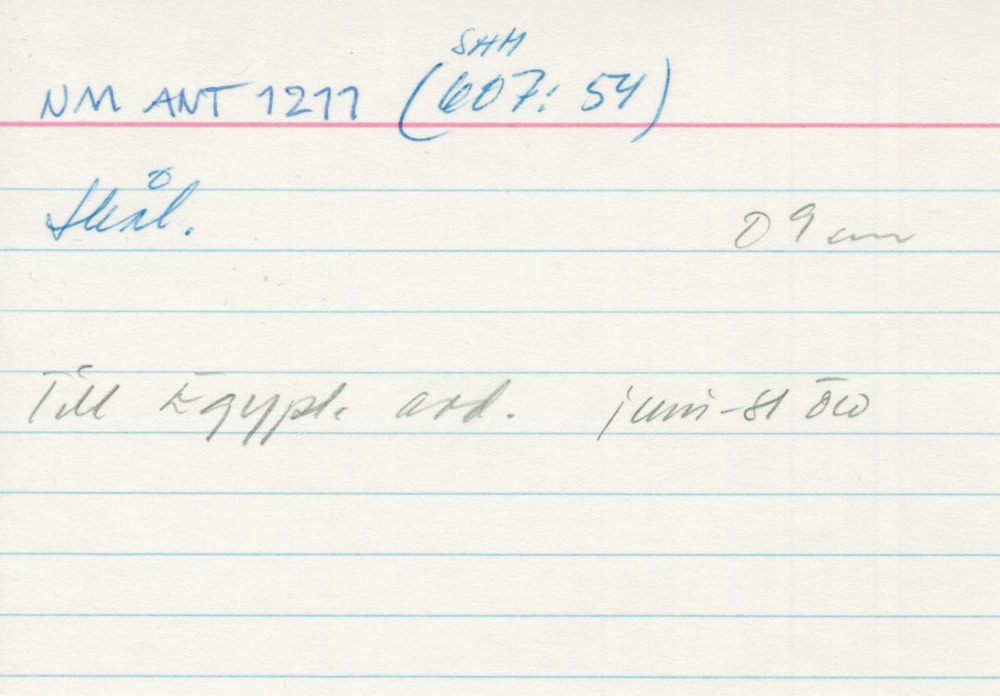 SHM
NM ANT 1277 (607:54)
Skål.
Ø 9 cm
Till Egypt. avd. juni-81 ÖW